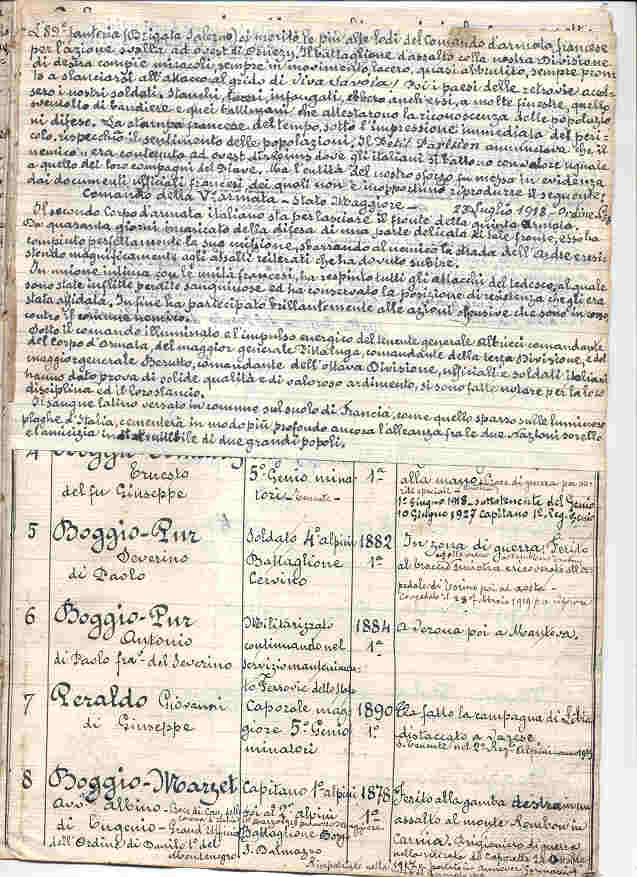 L'89ª fanteria (Brigata Salerno) si meritò le più alte lodi del Comando d'armata francese
per l'azione svolta ad ovest di Il battaglione d'assalto colla nostra Divisione
di destra compiè miracoli, sempre in movimento, lacero, quasi abbrutito, sempre pron
to a slanciarsi all'attacco al grido di Viva Savoia! Poi i paesi delle retrovie accol-
sero i nostri soldati. Stanchi, infangati, ebbero anch'essi, a molte finestre, quello
sventolìo di bandiere e quei battimani che attestarono la riconoscenza delle popolazio
ni difese. La stampa francese del tempo, sotto l'impressione immediata del peri-
colo, rispecchiò il sentimento delle popolazioni. Il Petit Parisien annunciava "che il
nemico" era contenuto ad ovest di Reims dove gli italiani si battono con valore uguale
a quello dei loro compagni del Piave. Ma l'entità del nostro sforzo fu messo in evidenza
dai documenti ufficiali francesi, dei quali non è inopportuno riprodurre il seguente:
Comando della V Armata - Stato Maggiore - Luglio 1918 - Ordine
Il secondo Corpo d'armata italiano sta per lasciare il fronte della quinta Armata.
Da quaranta giorni incaricato della difesa di una parte delicata di tale fronte, esso ha
compiuto perfettamente la sua missione, sbarrando al nemico la strada dell'Ardre e resi-
stendo magnificamente agli assalti reiterati che ha dovuto subire.
In unione intima con l'unità francesi, ha respinto tutti gli attacchi del tedesco, al quale
sono state inflitte perdite sanguinose ed ha conservato la posizione di resistenza che gli era
stata affidata. Infine ha partecipato brillantemente alle azioni offensive che sono in corso
contro il comune nemico.
Sotto il comando illuminato e l'impulso energico del tenente generale Albricci comandante
del Corpo d'Armata, del maggior generale Pittaluga, comandante della terza Divisione, e del
maggior generale Beruto, comandante dell'ottava Divisione, ufficiali e soldati italiani
hanno dato prova di solide qualità e di valoroso ardimento, si sono fatte notare per la loro
disciplina ed il loro slancio.
Il sangue latino versato in comune sul suolo di Francia, come quello sparso sulle luminose
plaghe d'Italia, cementerà in modo più profondo ancora l'alleanza fra le due Nazioni sorelle
e l'amicizia indistruttibile di due grandi popoli.
4
Ernesto
del fu Giuseppe
5° Genio mina
tori - tenente -
1ª
alla mano Croce di guerra per me-
rito speciale -
1° Giugno 1918 - sottotenente del Genio
10 Giugno 1927 Capitano 1° Reg. Genio
5 Boggio-Pur
Severino
di Paolo
Soldato 4° alpini
Battaglione
Cervino
1882
1ª
In zona di guerra. Ferito
al braccio sinistro e ricoverato all'o-
pedale di Torino poi ad Aosta -
Congedato il 28 febbraio 1919
6 Boggio-Pur
Antonio
di Paolo fra. del Severino
Militarizzato
continuando nel
servizio manteni
to Ferrovie dello Stato
1884
1ª
a Verona poi a Mantova.
7 Peraldo Giovanni
di Giuseppe
Caporale mag-
giore 5° Genio
minatori
1890
1ª
Ha fatto la campagna di Libia
distaccato a Varese
8 Boggio-Marzet
Avv. Albino -
di Eugenio - Grand'Ufficiale
dell'Ordine di Danilo I° del
Montenegro
Capitano 1° alpini
poi al 2° alpini
Battaglione Borgo
S. Dalmazzo
1878
1ª
Ferito alla gamba destra in un
assalto al monte Rombon in
Carnia. Prigioniero di guerra
nella ritirata di Caporetto 24 Ottobre
1917
Rimpatriato nella